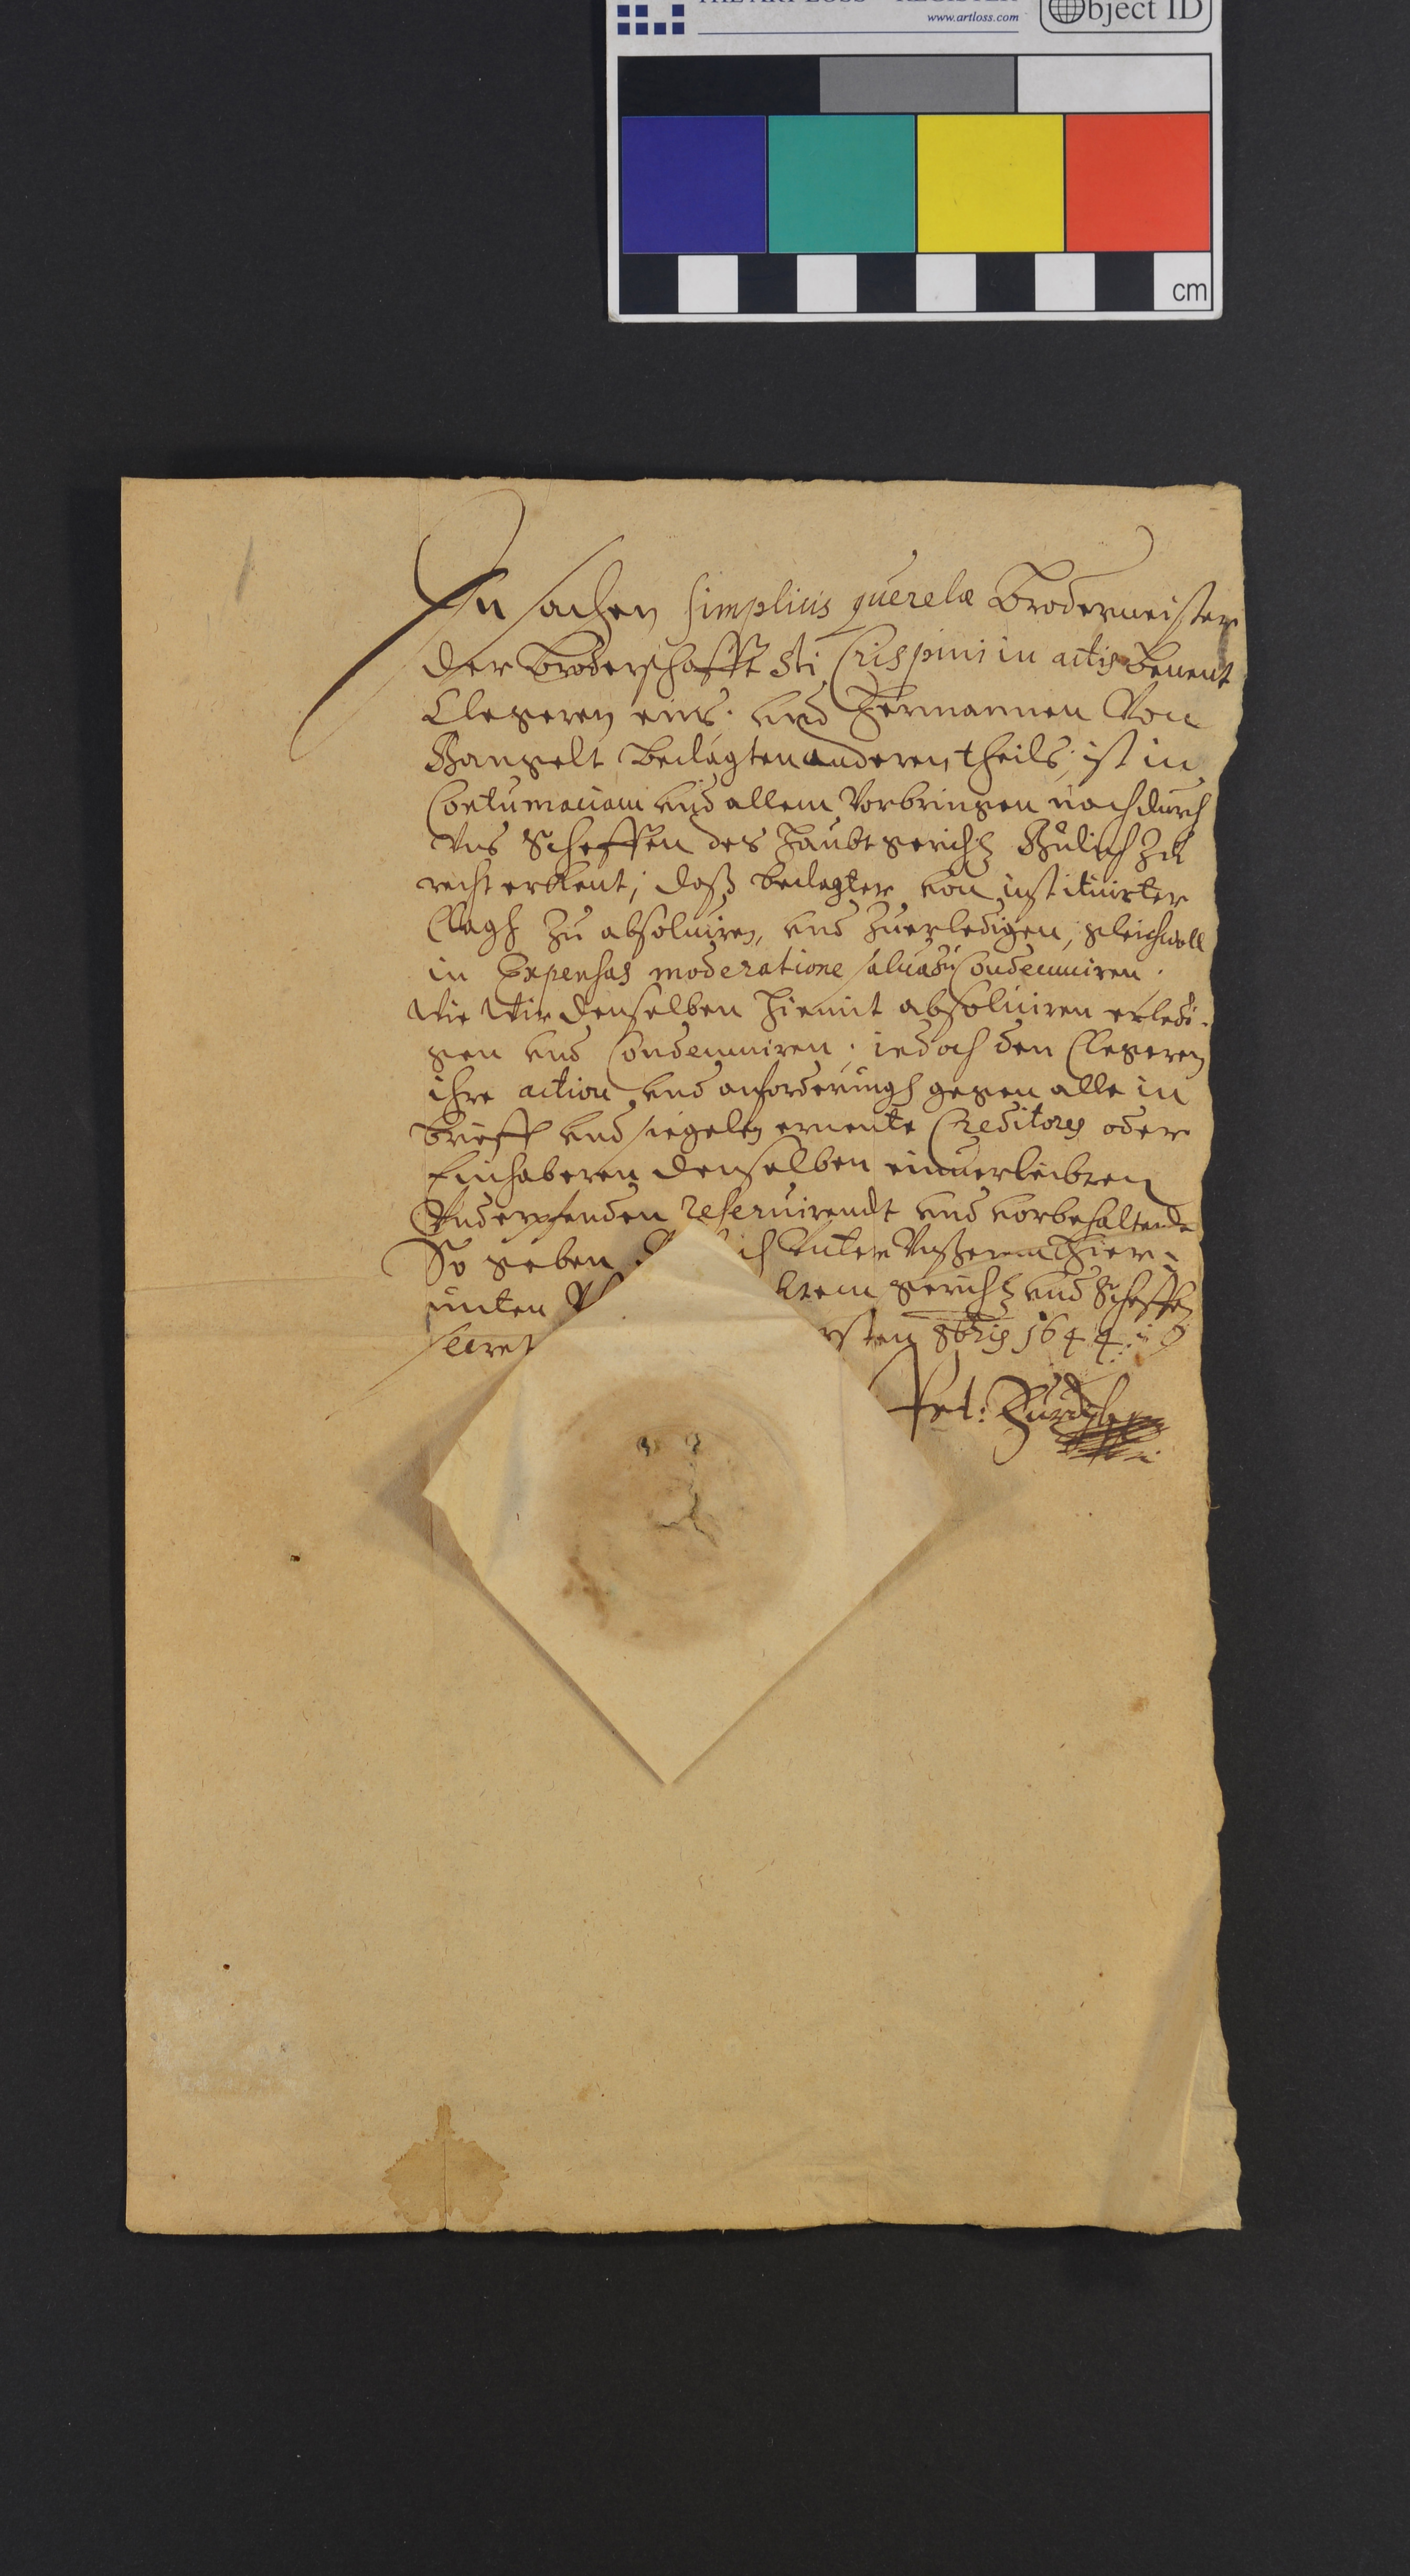 THE ART LOSS REGISTER
www.artloss.com
Object ID
cm
In sachen simplicis querelæ Brodermeister
der Broderschafft Sti Crispini in actis benent
Clegeren eins. und Hermannen Von
Hangelt beclagten anderen theils, ist in
Contumaciam und allem Vorbringen nach durch
Uns Scheffen des Haubtgerichtz Gülich zu
recht erkent, daß beclagter von instituirter
Clagh zu absoluiren, und zuerledigen, gleichwoll
in Expensas moderatione salua zu Condemniren.
Wie Wir denselben hiemit absoluiren erledi-
gen und Condemniren. iedoch den Clegeren
ihre action und anforderungh gegen alle in
brieff und siegelen ernente Creditores oder
Einhaberen denselben einuerleibten
Underpfenden reseruirendt und vorbehaltende
So geben unter Unserem hier
unten gerichtz und Scheffen
secret rsten 8bris 1644.
Pet: